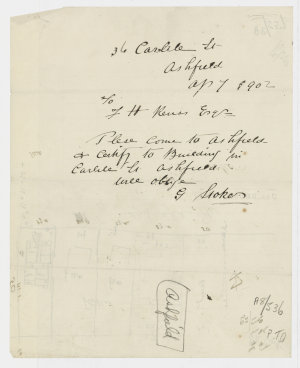 36 Carlile St
Ashfield
Ap 7 1902
To
J H Reuss Esqr
Please come to Ashfield
& Certify to Building in
Carlile St Ashfield
will oblige
G Stokes
Ashfield